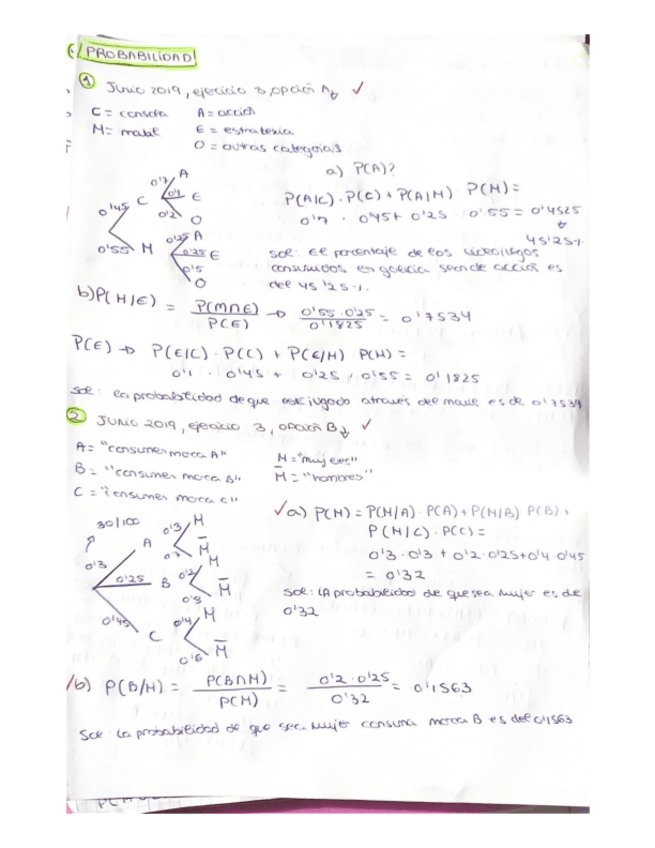 PROBABILIDAD
① Junio 2019, ejercicio 3, opción A ✓
C = consola A = acción
M = mobil E = estratexia
O = outras categorías
a) P(A)?
P(A|C) · P(C) + P(A|M) · P(M) =
0'7 · 0'45 + 0'25 · 0'55 = 0'4525
45'25%
0'45 C 0'7 A
0'1 E
0'2 O
0'55 M 0'25 A
0'25 E
0'5 O
Sol: El porcentaje de los videojuegos
consumidos en galicia sean de acción es
del 45'25%.
b) P(M/E) = P(M∩E) / P(E) → 0'55·0'25 / 0'1825 = 0'7534
P(E) → P(E/C) · P(C) + P(E/M) · P(M) =
0'1 · 0'45 + 0'25 · 0'55 = 0'1825
Sol: La probabilidad de que jugado através del es de 0'7534
② Junio 2019, ejercicio 3, opción B ✓
A = "consumer marca A" M = "mujeres"
B = "consumer marca B" M̅ = "hombres"
C = "consumer marca C"
✓ a) P(M) = P(M/A) · P(A) + P(M/B) · P(B) +
P(M/C) · P(C) =
0'3 · 0'3 + 0'2 · 0'25 + 0'4 · 0'45
= 0'32
Sol: La probabilidad de que sea mujer es de
0'32
30/100
0'3 A 0'3 M
0'7 M̅
0'25 B 0'2 M
0'8 M̅
0'45 C 0'4 M
0'6 M̅
b) P(B/M) = P(B∩M) / P(M) = 0'2 · 0'25 / 0'32 = 0'1563
Sol: La probabilidad de que sea mujer consuma marca B es del 0'1563